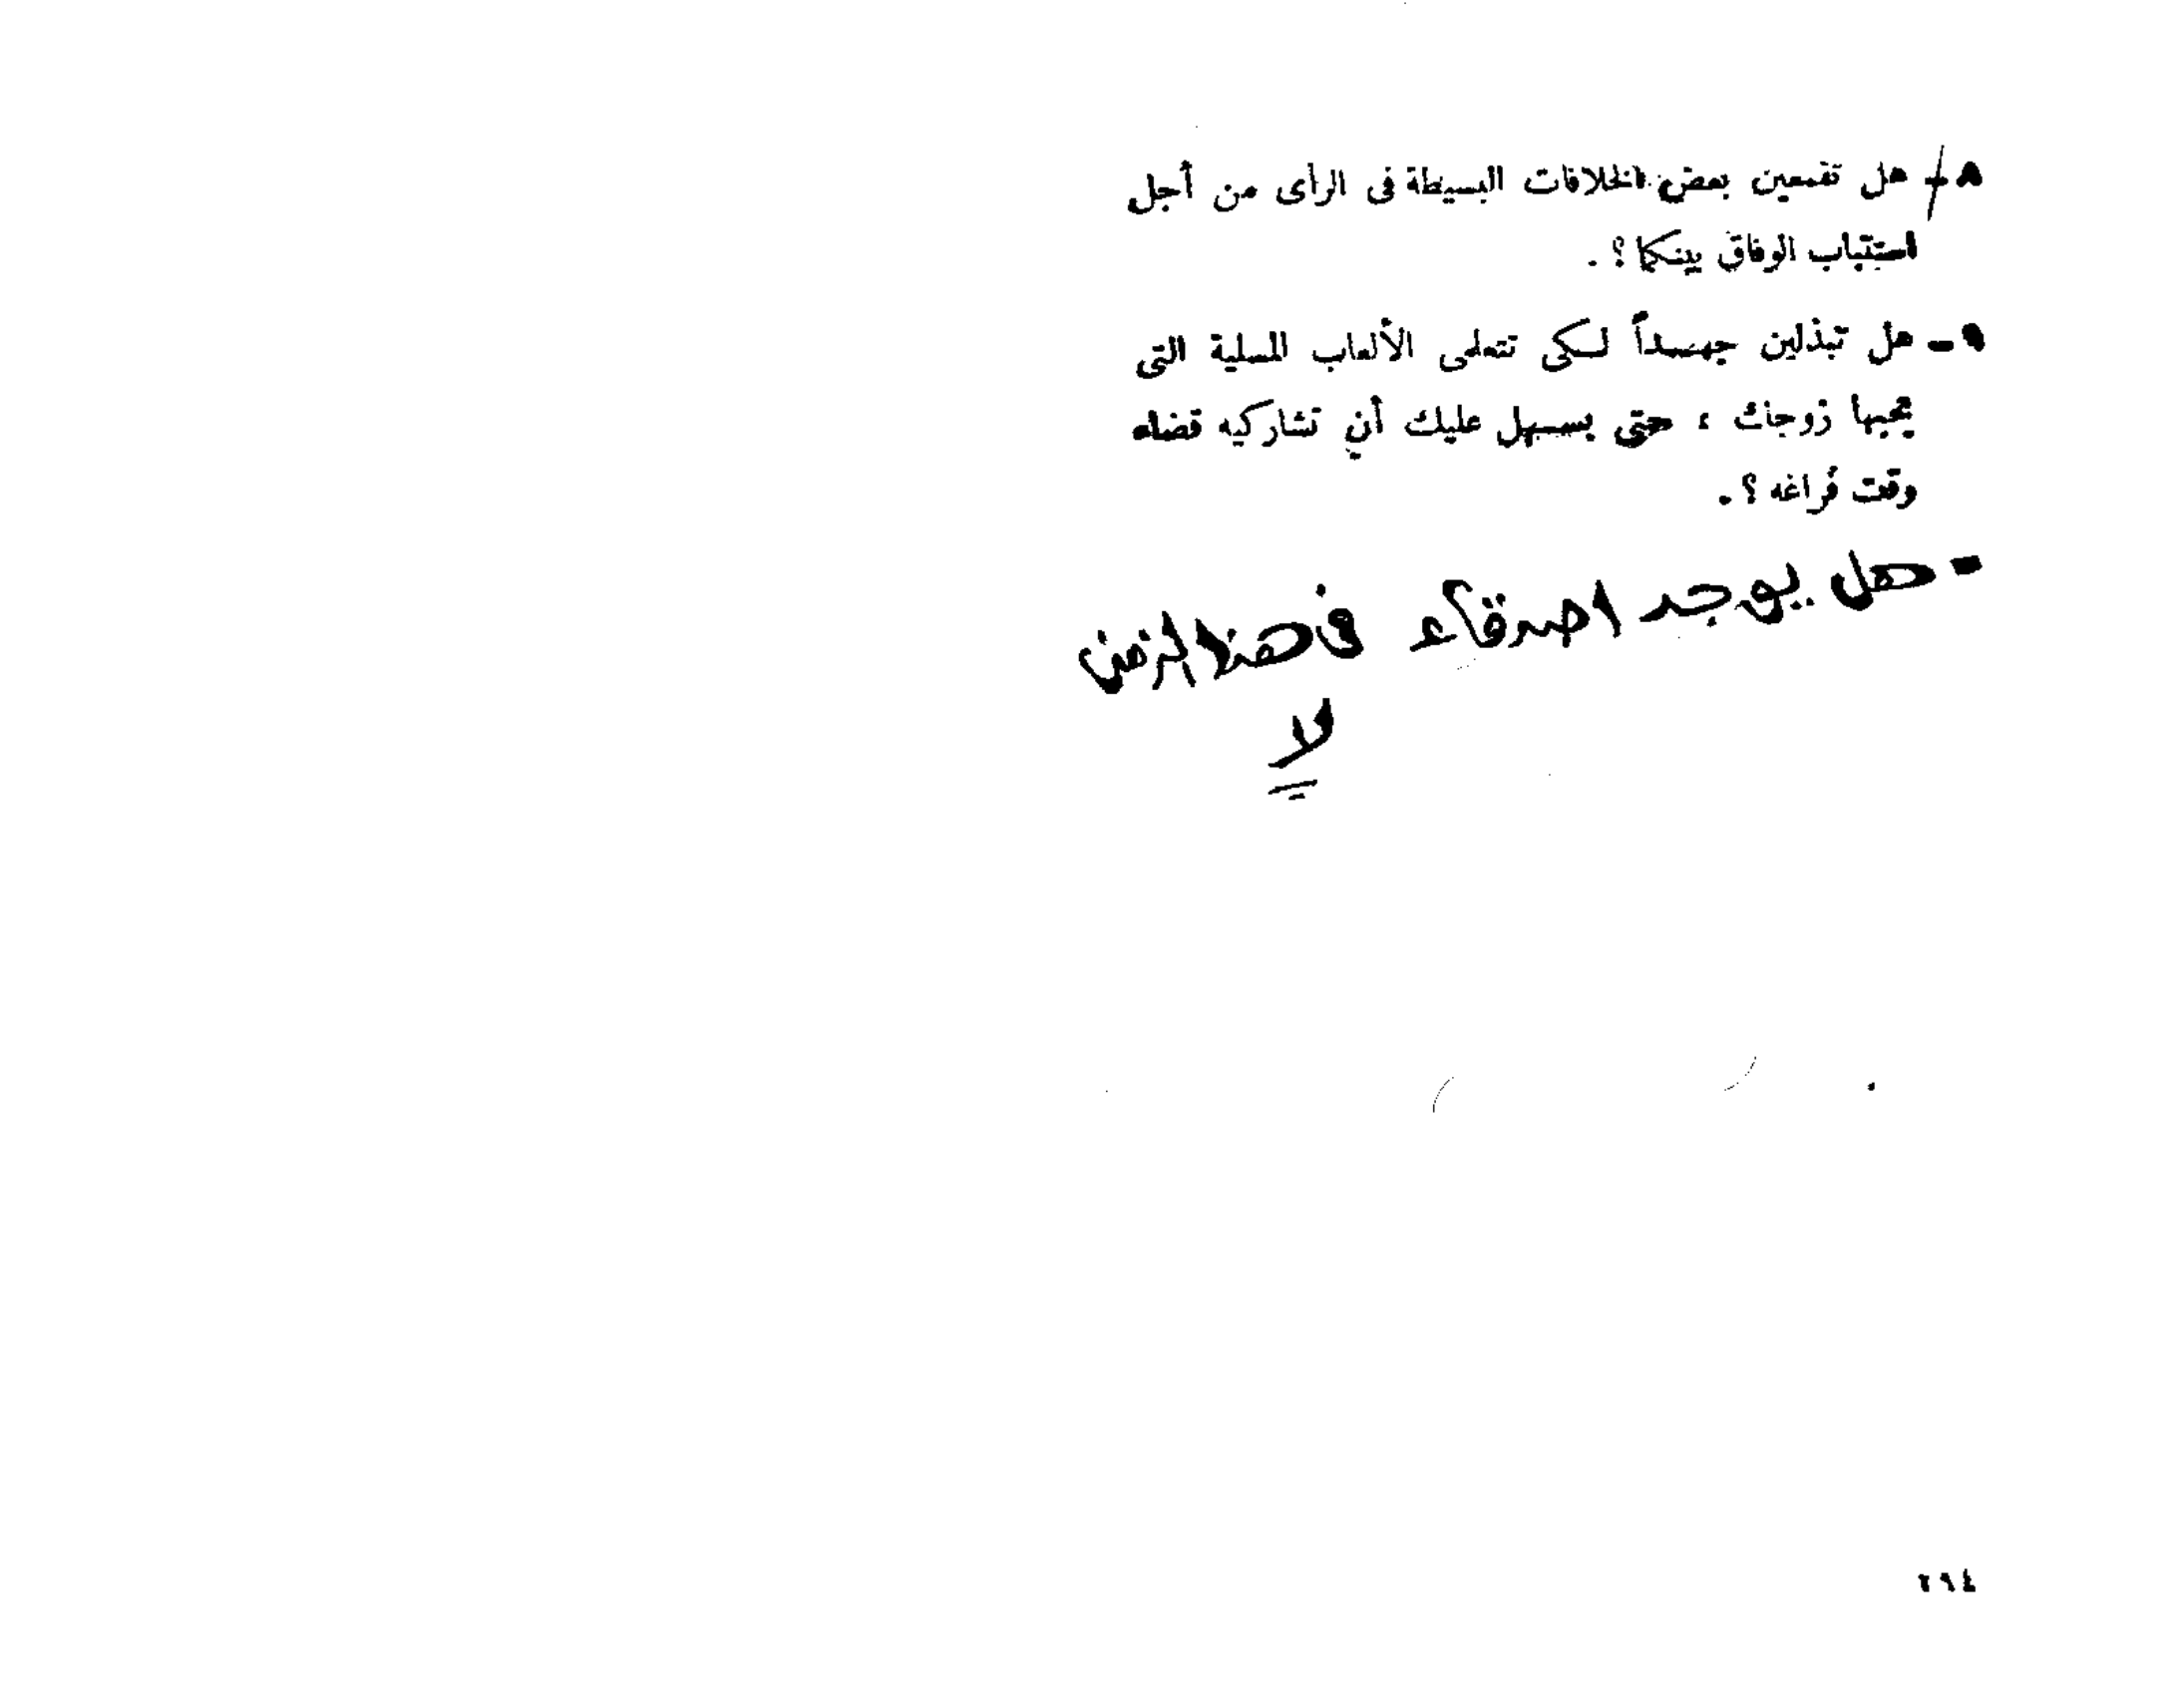 ٨ – هل تقمعين بعض الخلافات البسيطة فى الرأى من أجل
استتباب الوفاق بينكما؟ .
٩ – هل تبذلين جهـداً لـكى تتعلمى الألعاب المسلية التى
يحبها زوجك ، حتى يسـهل عليك أن تشاركيه قضاء
وقت فراغه ؟ .
- هل يوجد اصدقاء فى هذا الزمن
لا
٢٩٤